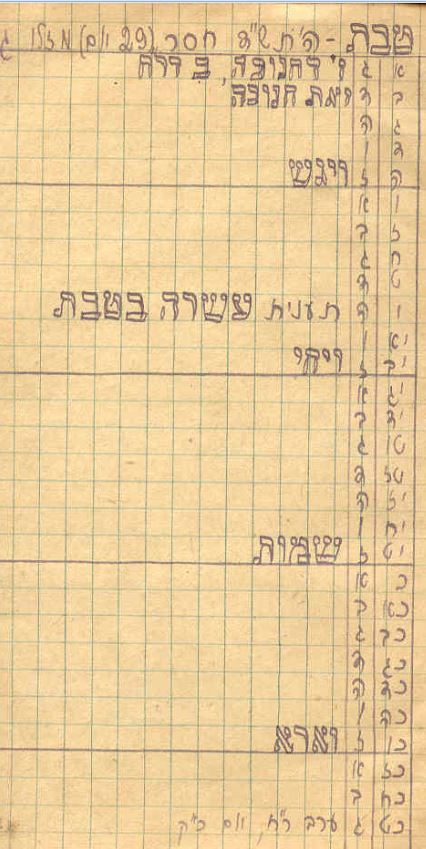 טבת - ה'ת ש"ד חסר (29 יום) מזלו ג
א ג ז' דחנוכה, ב דר"ח
ב ד זאת חנוכה
ג ה
ד ו
ה ז ויגש
ו א
ז ב
ח ג
ט ד
י ה תענית עשרה בטבת
יא ו
יב ז ויחי
יג א
יד ב
טו ג
טז ד
יז ה
יח ו
יט ז שמות
כ א
כא ב
כב ג
כג ד
כד ה
כה ו
כו ז וארא
כז א
כח ב
כט ג ערב ר"ח, יום כ"ק